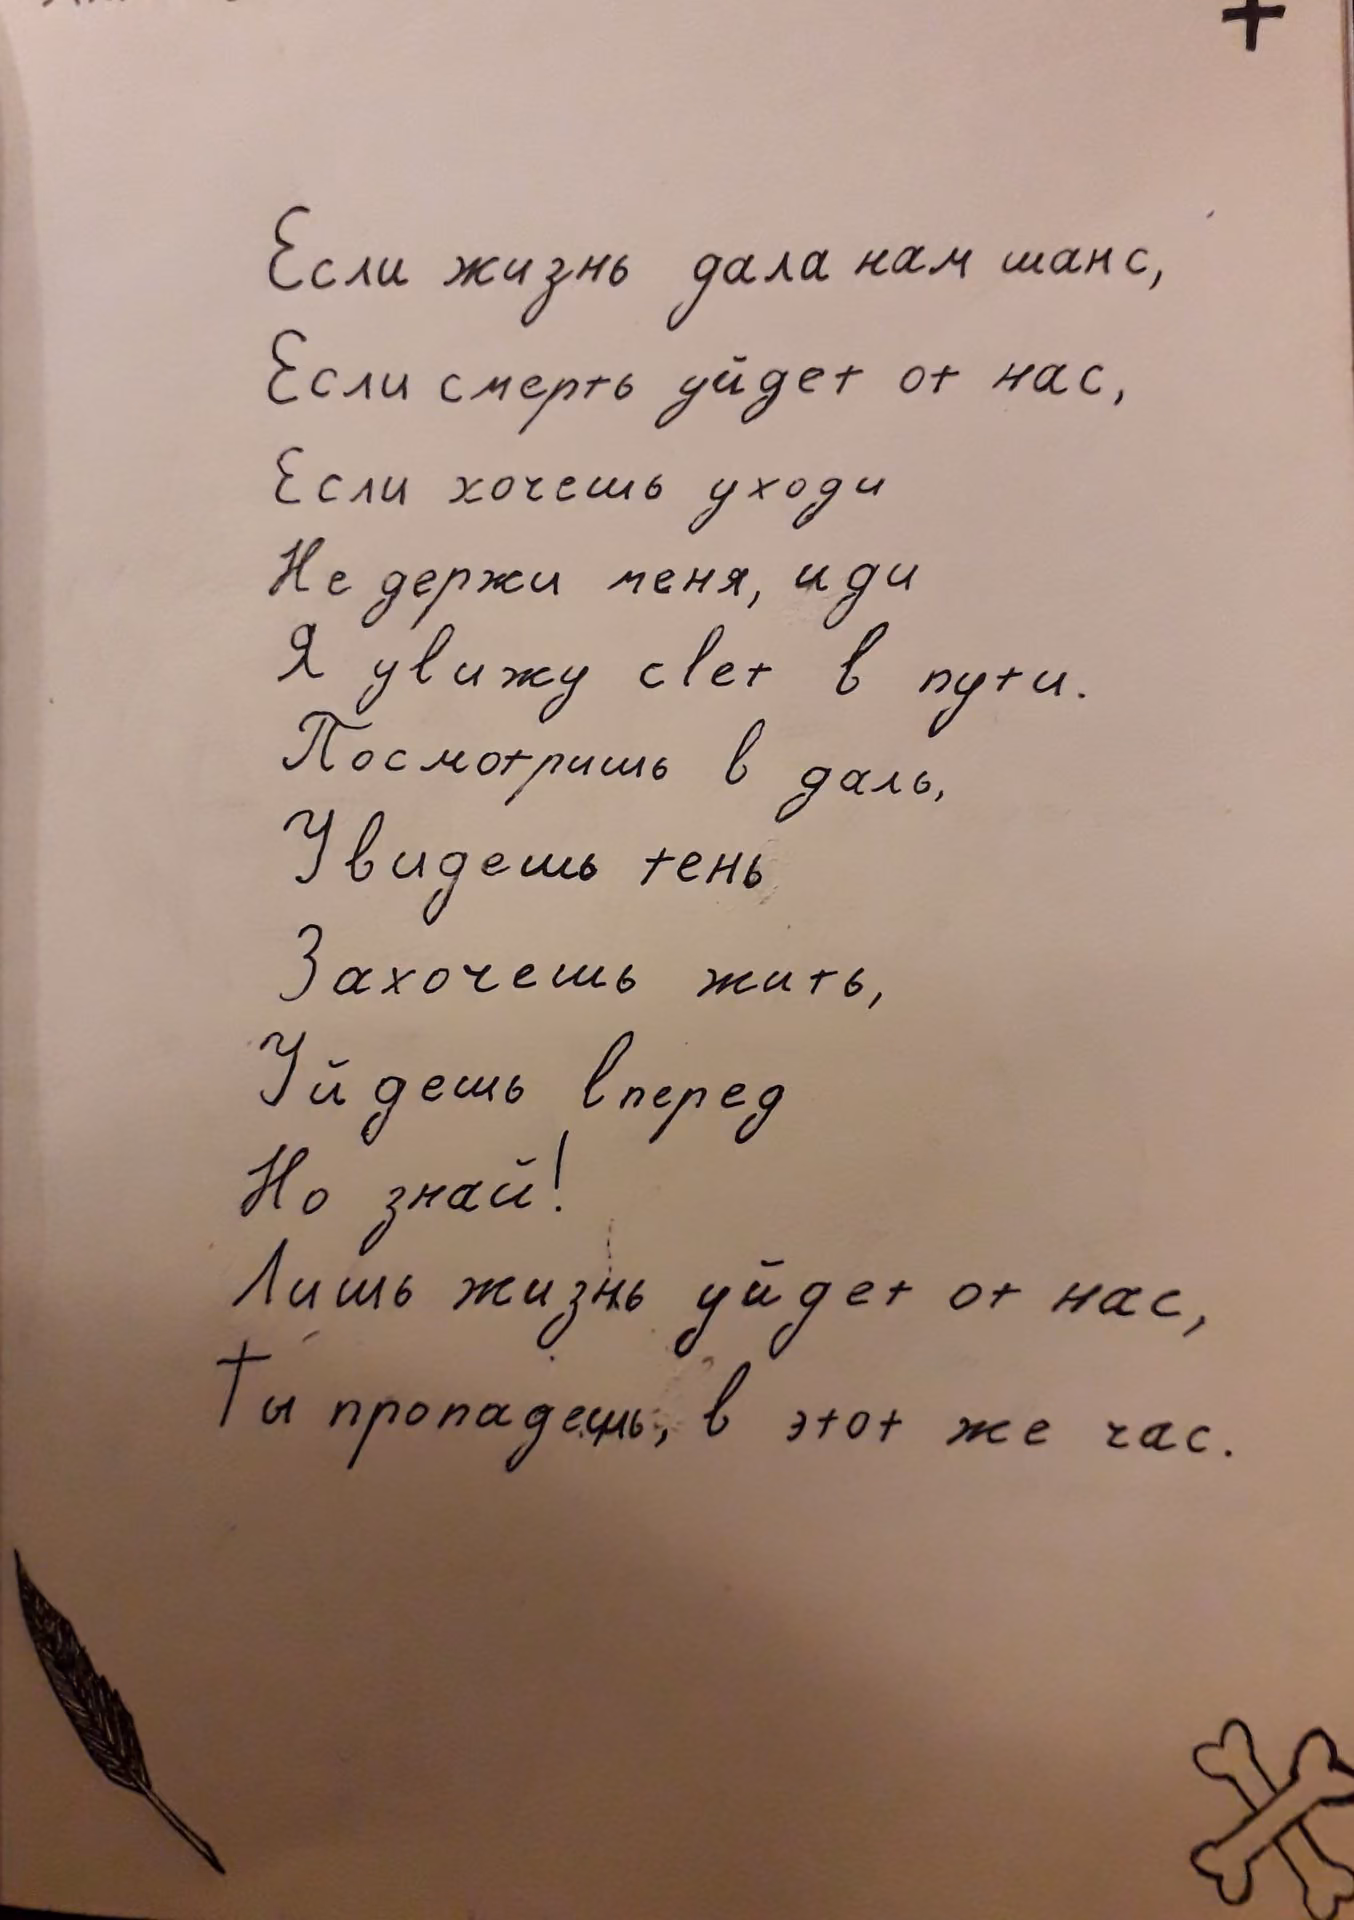 Если жизнь дала нам шанс,
Если смерть уйдет от нас,
Если хочешь уходи
Не держи меня, иди
Я увижу свет в пути.
Посмотришь в даль,
Увидешь тень
Захочешь жить,
Уйдешь вперед
Но знай!
Лишь жизнь уйдет от нас,
Ты пропадешь, в этот же час.